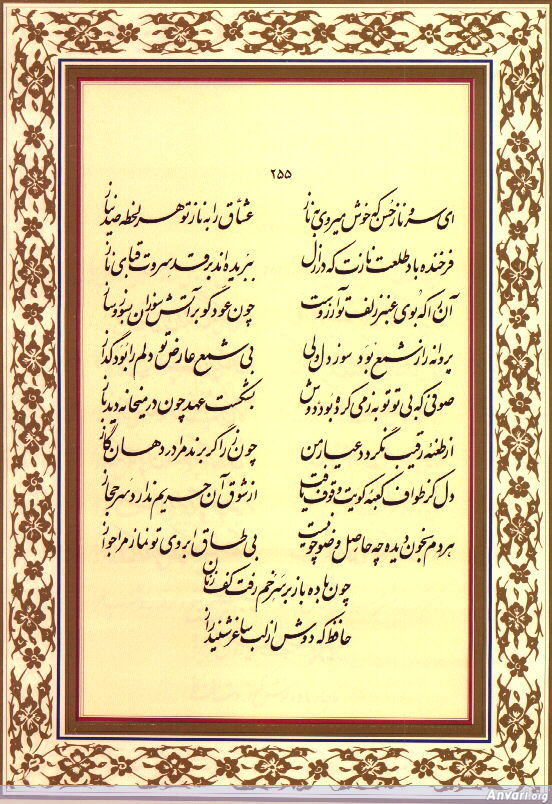 ۲۵۵
ای سرو ناز حسن که خوش میروی به ناز عشاق را به ناز تو هر لحظه صد نیاز
فرخنده باد طلعت نازت که در ازل ببریده‌اند بر قد سروت قبای ناز
آن را که بوی عنبر زلف تو آرزوست چون عود گو بر آتش سوزان بسوز و ساز
پروانه را ز شمع بود سوز دل ولی بی شمع عارض تو دلم را بود گداز
صوفی که بی تو توبه ز می کرده بود دوش بشکست عهد چون در میخانه دید باز
از طعنه رقیب نگردد عیار من چون زر اگر برند مرا در دهان گاز
دل کز طواف کعبه کویت وقوف یافت از شوق آن حریم ندارد سر حجاز
هر دم بخون دیده چه حاصل وضو چو نیست بی طاق ابروی تو نماز مرا جواز
چون باده باز بر سر خم رفت کف زنان
حافظ که دوش از لب ساغر شنید راز
Anvari.org